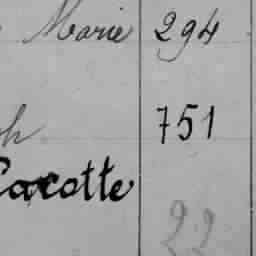 Marie 294
751
Carotte
22